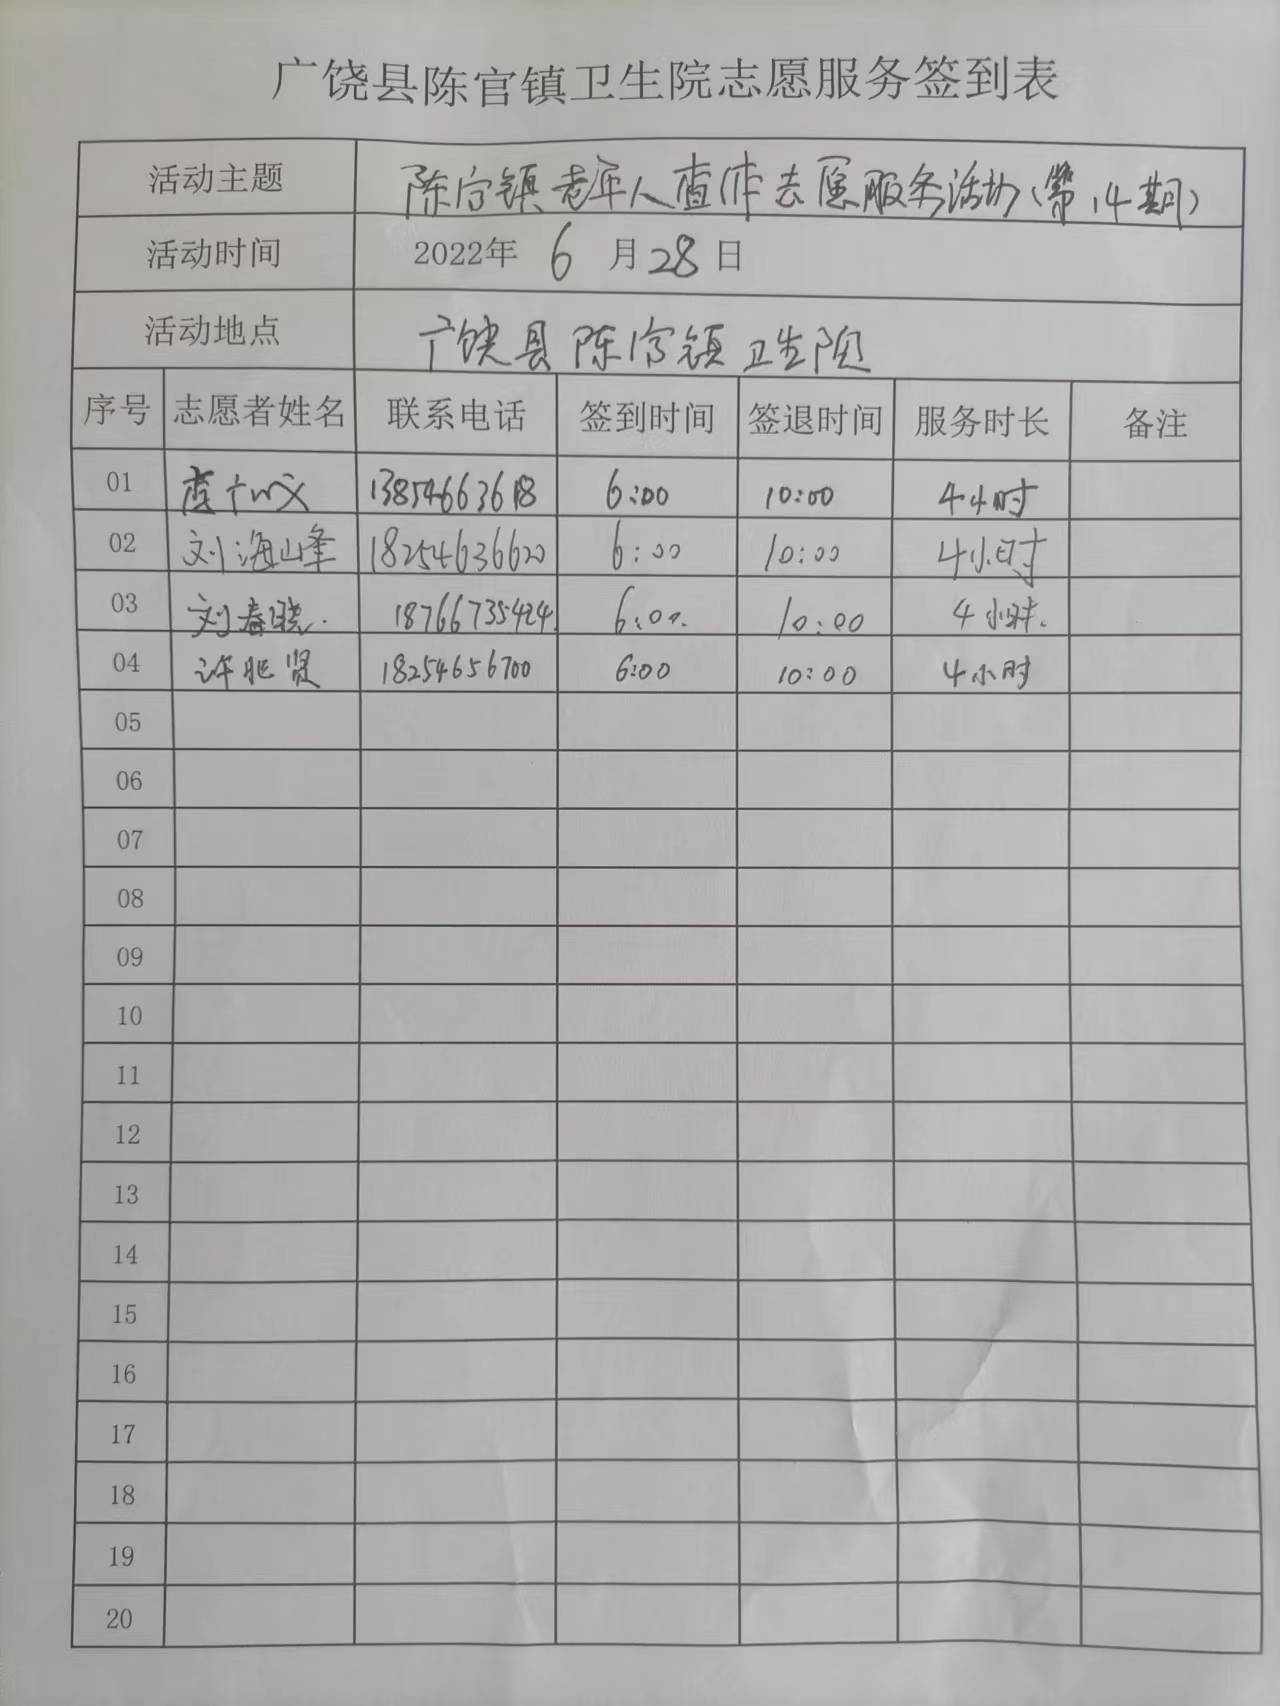 广饶县陈官镇卫生院志愿服务签到表
活动主题 陈官镇老年人查体志愿服务活动(第14期)
活动时间 2022年 6 月 28 日
活动地点 广饶县陈官镇卫生院
序号 志愿者姓名 联系电话 签到时间 签退时间 服务时长 备注
01 13854663618 6:00 10:00 4小时
02 刘海峰 18254636620 6:00 10:00 4小时
03 刘春晓. 18766735424 6:00. 10:00 4小时.
04 许 贤 18254656700 6:00 10:00 4小时
05
06
07
08
09
10
11
12
13
14
15
16
17
18
19
20